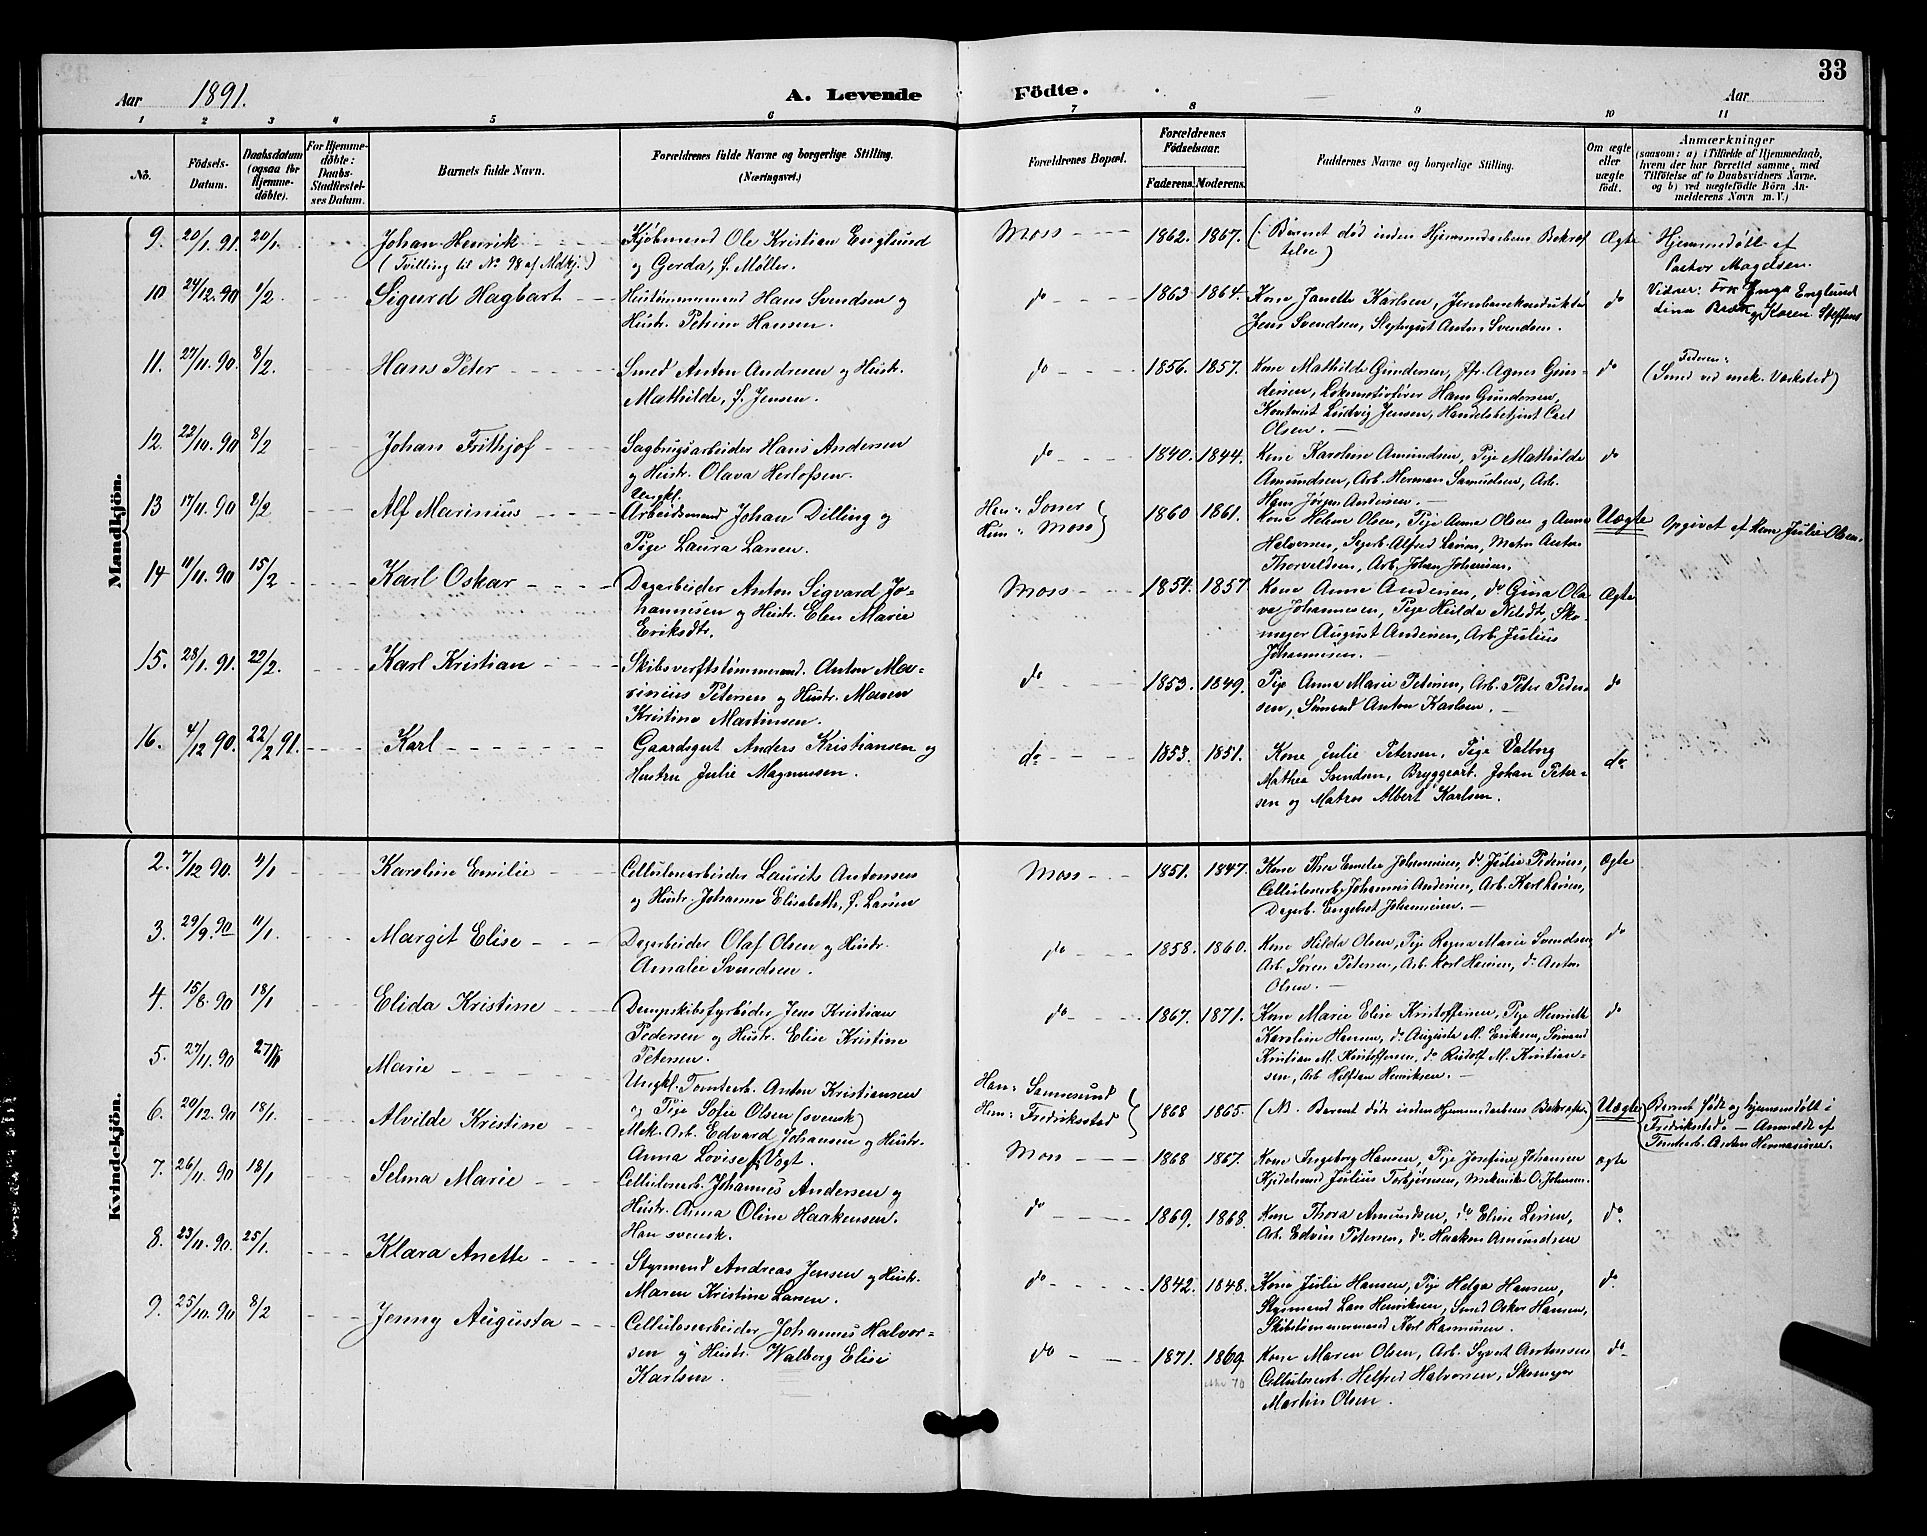 33
Aar 1891. A. Levende Födte. Aar
1 2 3 4 5 6 7 8 9 10 11
No.
Födsels-Datum.
Daabsdatum (ogsaa for Hjemme-döbte).
For Hjemme-döbte: Daabs-Stadfæstel-ses Datum.
Barnets fulde Navn.
Forældrenes fulde Navne og borgerlige Stilling.
(Næringsvei.)
Forældrenes Bopæl.
Forældrenes Födselsaar.
Faderens. Moderens.
Faddernes Navne og borgerlige Stilling.
Om ægte eller uægte födt.
Anmærkninger
(saasom: a) i Tilfælde af Hjemmedaab,
hvem der har forrettet samme, med
Tilföielse af to Daabsvidners Navne,
og b) ved uægtefödte Börn An-
melderens Navn m. V.)
Mandkjön.
9. 20/1. 91. 20/1 Johan Henrik
(Tvilling til No 98 af Mdkj.)
Kjøbmand Ole Kristian Englund
og Gerda, f. Møller.
Moss 1862. 1867. (: Barnet død inden Hjemmedaabens Bekræf
telse) Ægte
Hjemmedøbt af
Pastor Magelsen.
Vidner: Frk Inga Englund
Lina Brek og Karen Steffens
10 24/12. 90 1/2. Sigurd Hagbart
Hustømmermand Hans Svendsen og
Hustr. Petrine Hansen.
do 1863 1864. Kone Janette Karlsen, Jernbanekonduktør
Jens Svendsen, Styhrgut Anton Svendsen. do
11. 27/11. 90. 8/2. Hans Peter
Smed Anton Andresen og Hustr.
Mathilde, f. Jensen.
do 1856. 1857. Kone Mathilde Gundersen, Fr. Agnes Gun-
dersen, Lokomotivfører Hans Gundersen,
Kontorist Ludvig Jensen, Handelsbetjent Carl
Olsen. do
Faderen:
(Smed ved mek. Værksted)
12. 22/10. 90 8/2 Johan Frithjof
Sagbrugsarbeider Hans Andersen
og Hustr. Olava Herlofsen.
do 1840. 1844. Kone Karoline Amundsen, Pige Mathilde
Amundsen, Arb. Herman Samuelsen, Arb.
Hans Jørgen Andersen. do
13 17/11. 90 8/2 Alf Marinius
Ungkl.
Arbeidsmand Johan Dilling og
Pige Laura Larsen.
Han: Soner
Hun: Moss
1860 1861. Kone Helene Olsen, Pige Anna Olsen og Anna
Halvorsen, Sagarb. Alfred Larsen, Matros Anton
Thorvaldsen, Arb. Johan Johansen. Uægte
Opgivet af Kone Julie Olsen.
14 11/11. 90 15/2 Karl Oskar
Dagarbeider Anton Sigvard Jo-
hannesen og Hustr. Elen Marie
Eriksdtr.
Moss 1854. 1857 Kone Anna Andersen, do Gina Ola
va Johannesen, Pige Hilda Nilsdtr, Sko-
mager August Andersen, Arb. Julius
Johannesen. Ægte
15. 28/1. 91. 22/2. Karl Kristian
Skibsverftstømmermd. Anton Ma-
rinius Petersen og Hustr. Maren
Kristine Martinsen.
do 1853. 1849. Pige Anna Marie Petersen, Arb. Peter Peder-
sen, Sømand Anton Karlsen. do
16. 4/12 90. 22/2 91. Karl
Gaardsgut Anders Kristiansen og
Hustru Julie Magnussen.
do 1853. 1851. Kone Julie Petersen, Pige Valborg
Mathea Svendsen, Bryggearb. Johan Peter-
sen og Matros Albert Karlsen. do
Kvindekjön.
2. 7/12 90. 4/1 Karoline Emilie
Cellulosearbeider Laurits Antonsen
og Hustr. Johanne Elisabeth, f. Larsen
Moss 1851. 1847. Kone Thea Emelie Johannesen, do Julie Pedersen,
Cellulosearb. Johannes Andersen, Arb. Karl Larsen,
Dagarb. Engebret Johannesen. Ægte
3. 29/9. 90 11/1. Margit Elise
Dagarbeider Olaf Olsen og Hustr.
Amalie Svendsen.
do 1858. 1860. Kone Hilda Olsen, Pige Ragna Marie Svendsen,
Arb. Søren Petersen, Arb. Karl Hansen, do Anton
Olsen. do
4. 15/8. 90 18/1 Elida Kristine
Dampskibsfyrbøder Jens Kristian
Pedersen og Hustr. Elise Kristine
Petersen.
do 1867. 1871. Kone Marie Elise Kristoffersen, Pige Henriette
Karoline Hansen, do Augusta M. Eriksen, Sømand
Kristian M. Kristoffersen, do Rudolf M. Kristian-
sen, Arb. Halfdan Henriksen. do
5. 27/11. 90 Marie
Ungkl. Tomtearb. Anton Kristiansen
og Pige Sofie Olsen (svensk)
Han: Sannesund
Hun: Fredriksstad
1868 1865. (NB. Barnet døde inden Hjemmedaabens Bekræft.) Uægte
Barnet født og hjemmedøbt i
Fredriksstad. — Anmeldt af
Tomtearb. Anton Hermansen.
6. 20/12. 90 18/1. Alvilde Kristine
Mek. Arb. Edvard Johansen og Hustr.
Anna Lovise f. Vogt.
Moss 1868 1867. Kone Ingeborg Hansen, Pige Josefine Johansen
Kjedelsmed Julius Torbjørnsen, Mekaniker O. Johansen. Ægte
7. 26/11. 90 18/1 Selma Marie
Cellulosearb. Johannes Andersen og
Hustr. Anna Oline Haakensen.
Han svensk.
do 1869. 1868. Kone Thora Amundsen, do Elise Larsen,
Arb. Edvin Petersen, do Haakon Amundsen do.
8. 23/11. 90. 25/1. Klara Anette
Styrmand Andreas Jensen og Hustr.
Maren Kristine Larsen.
do 1842. 1848. Kone Julie Hansen, Pige Helga Hansen,
Styrmand Lars Henriksen, Smed Oskar Hansen,
Skibstømmermand Karl Rasmussen. do.
9. 25/10. 90 8/2 Jenny Augusta
Cellulosearbeider Johannes Halvor-
sen og Hustr. Walborg Elise
Karlsen.
do 1871. 1869. Kone Maren Olsen, Arb. Syvert Antonsen
70
Cellulosearb. Helfred Halvorsen, Skomager
Martin Olsen. do